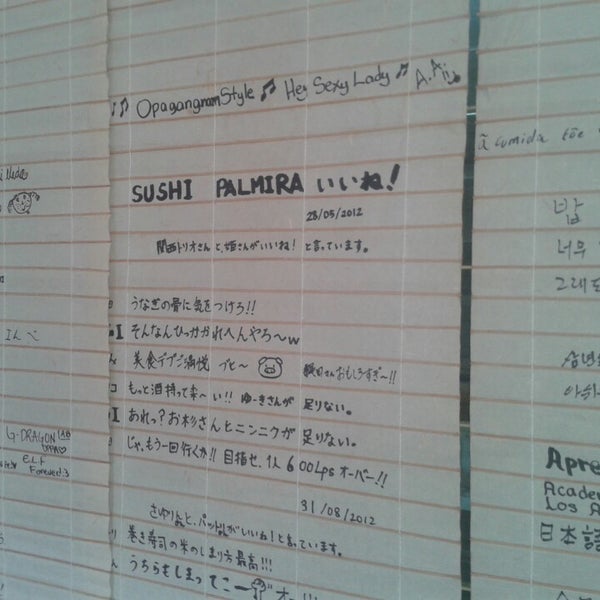 Opagangnam Style ♫ Hey Sexy Lady ♫ A.Ai
SUSHI PALMIRA いいね!
28/05/2012
関西トリオさんと、姫さんがいいね!と言っています。
うなぎの骨に気をつけろ!!
I そんなんひっかかれへんやろ〜w
美食デブご満悦 ブヒ〜 さんおもしろすぎ〜!!
もっと酒持って来〜い!! ゆーきさんが足りない。
I あれっ?お杉さんとニンニクが足りない。
じゃ、もう一回行くか!! 目指せ、1人600Lpsオーバー!!
31/08/2012
がいいね!と言っています。
巻き寿司の米のしまり方最高!!!
うちらもしまってこー オー!!!
G-DRAGON
ELF
Forever:3
ã comida
밥
너무
그래도
Apre
Academ
Los A
日本語